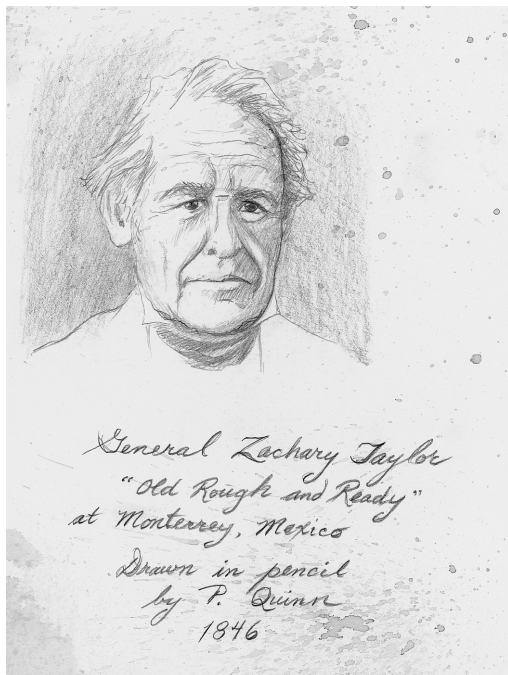 General Zachary Taylor
"Old Rough and Ready"
at Monterrey, Mexico
Drawn in pencil
by P. Quinn
1846